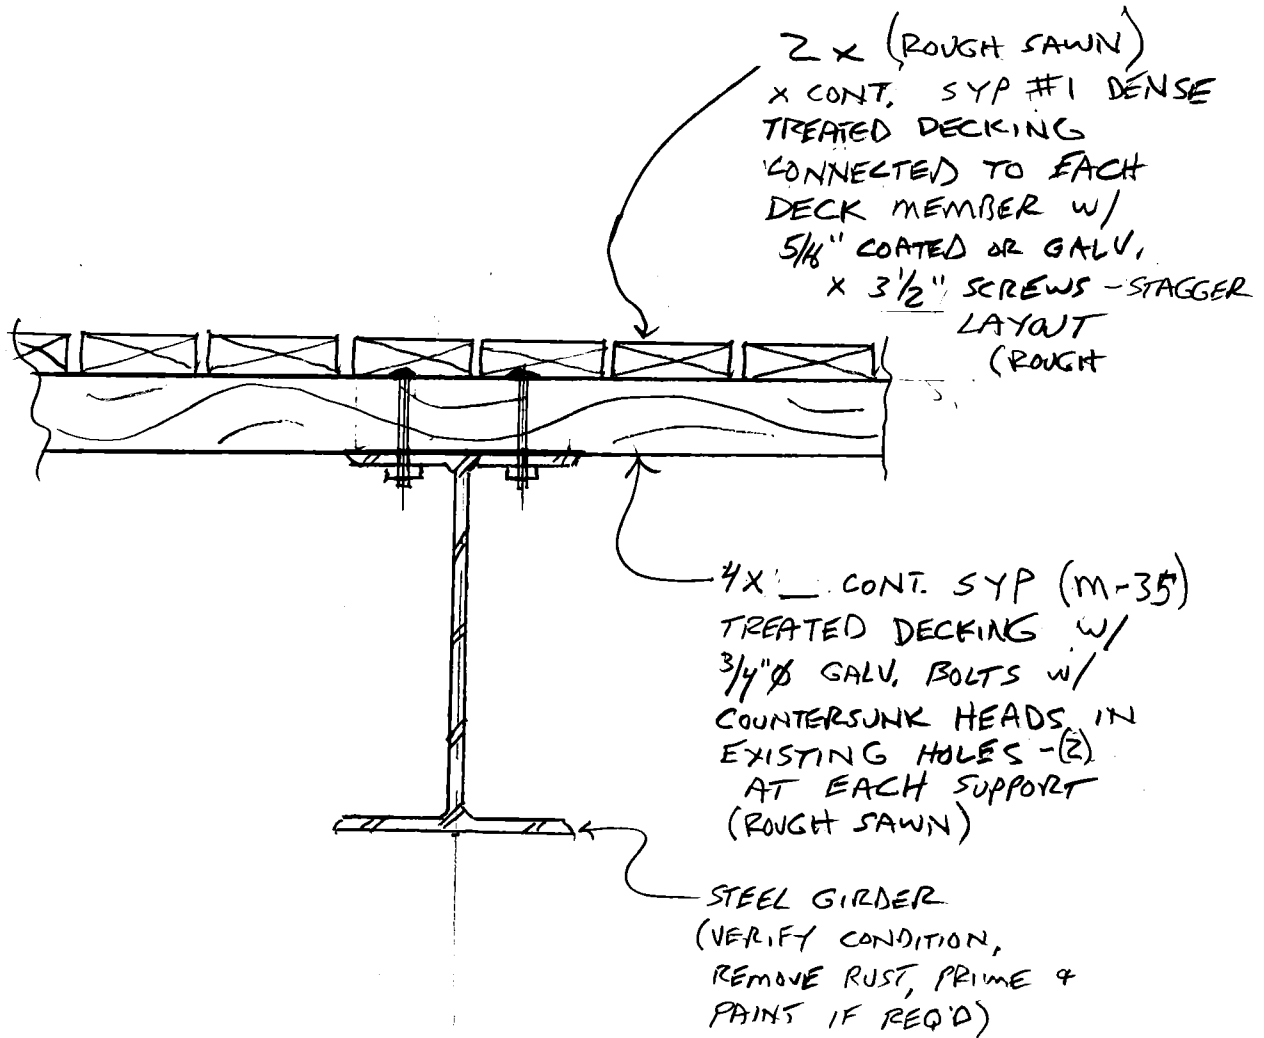 2 x (ROUGH SAWN)
x CONT. SYP #1 DENSE
TREATED DECKING
CONNECTED TO EACH
DECK MEMBER W/
5/16" COATED OR GALV.
x 3 1/2" SCREWS - STAGGER
LAYOUT
(ROUGH
4X _ CONT. SYP (M-35)
TREATED DECKING W/
3/4"Ø GALV. BOLTS W/
COUNTERSUNK HEADS IN
EXISTING HOLES - (2)
AT EACH SUPPORT
(ROUGH SAWN)
STEEL GIRDER
(VERIFY CONDITION,
REMOVE RUST, PRIME &
PAINT IF REQ'D)